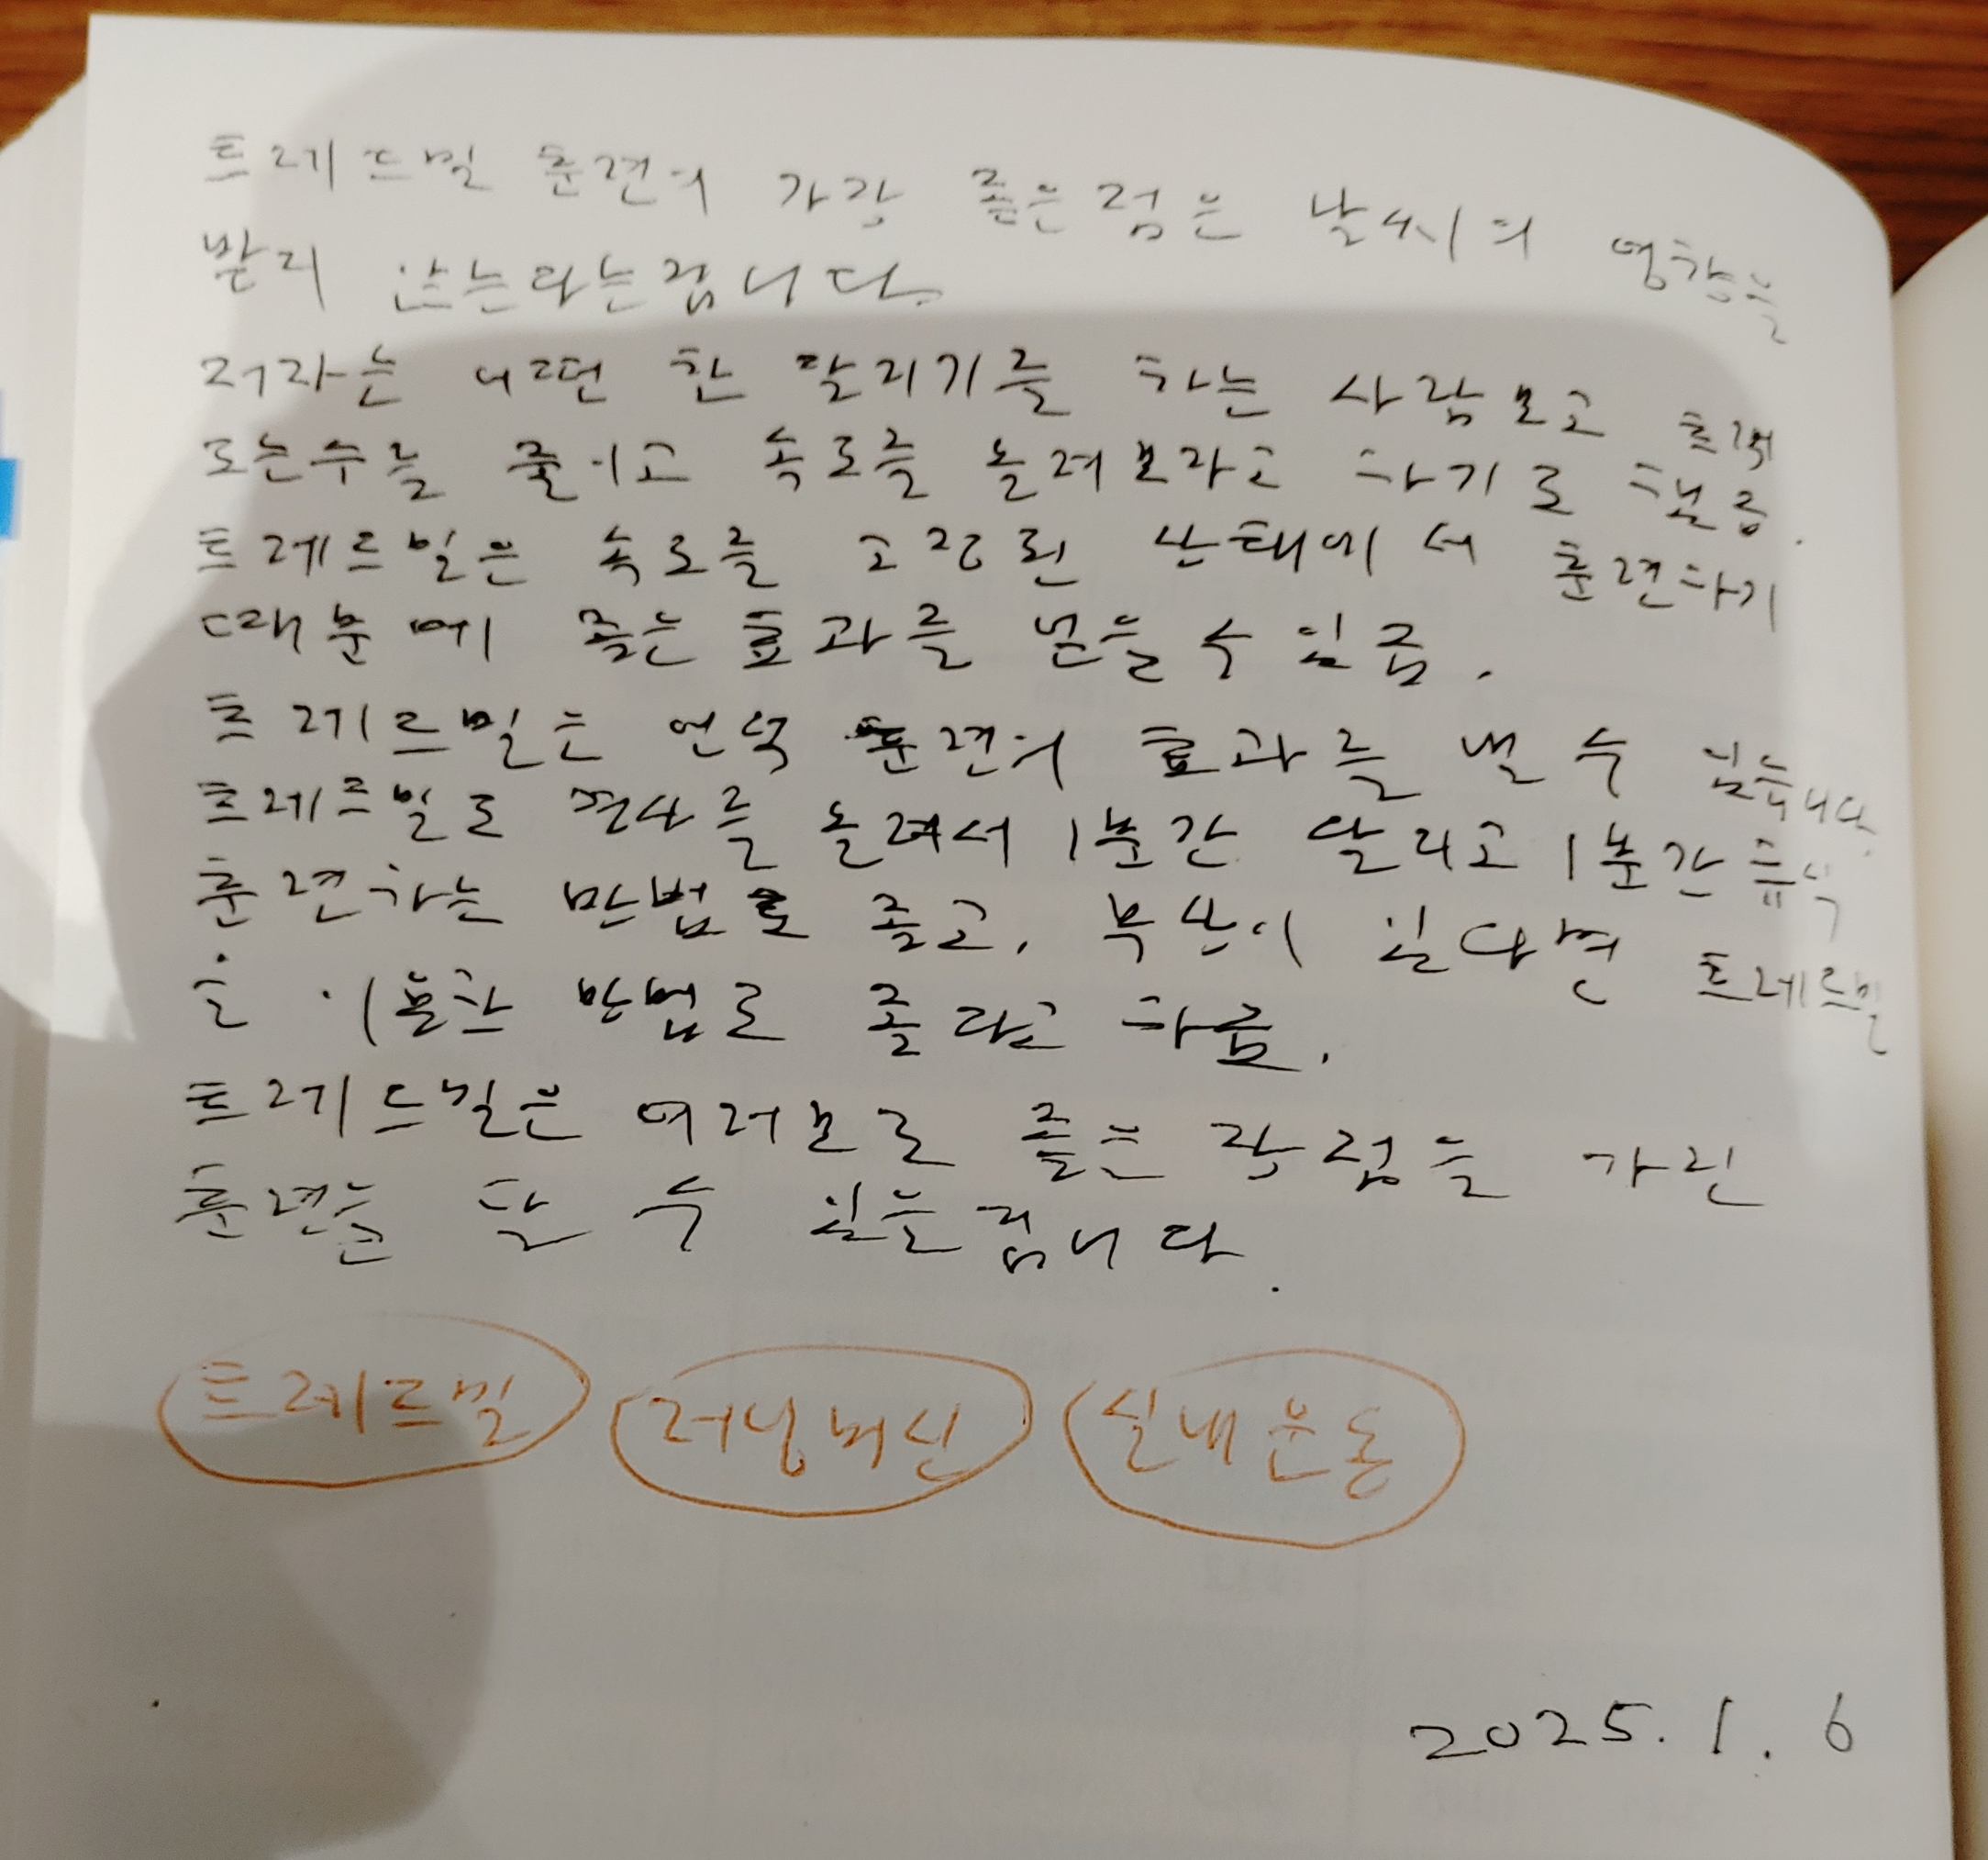 트레드밀 훈련의 가장 좋은점은 날씨의 영향을
받지 않는다는겁니다.
저자는 어떤 한 달리기를 하는 사람보고 트랙
도는수를 줄이고 속도를 늘려보라고 하기도 했음.
트레드밀은 속도를 고정된 상태에서 훈련하기
때문에 좋은 효과를 얻을 수 있음.
트레드밀은 언덕 훈련의 효과를 낼 수 있습니다.
트레드밀로 경사를 늘려서 1분간 달리고 1분간 휴식
훈련하는 방법도 좋고, 부상이 있다면 트레드밀
을 이용한 방법도 좋다고 하음.
트레드밀은 여러모로 좋은 장점을 가진
훈련을 할 수 있을겁니다.
트레드밀 러닝머신 실내운동
2025.1.6